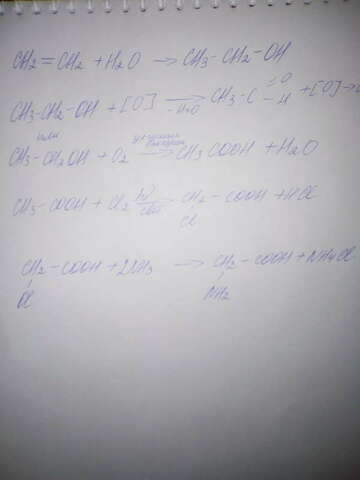 CH2=CH2 + H2O → CH3-CH2-OH
CH3-CH2-OH + [O] → CH3-C =O -H + [O] →
-H2O
или
CH3-CH2OH + O2 → CH3COOH + H2O
CH3-COOH + Cl2 hν свет → CH2-COOH + HCl
Cl
CH2-COOH + 2NH3 → CH2-COOH + NH4Cl
Cl NH2